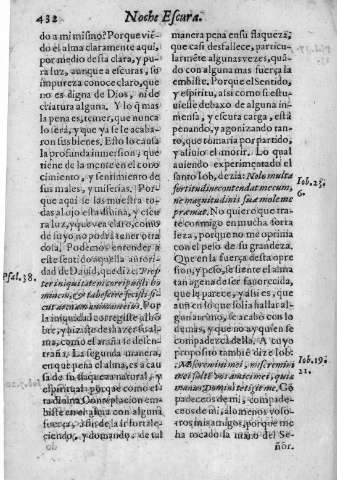 432
Noche Escura.
do a mi mismo? Porque viẽ-
do el alma claramente aqui,
por medio desta clara, y pu-
ra luz, aunque a escuras, su
impureza conoce claro, que
no es digna de Dios, ni de
criatura alguna. Y lo q̃ mas
la pena es, temer, que nunca
lo serà, y que ya se le acaba-
ron sus bienes. Esto lo causa
la profunda inmersion, que
tiene de la mente en el cono
cimiento, y sentimiento de
sus males, y miserias. Por-
que aqui se las muestra to-
das al ojo esta diuina, y escu
ra luz, y que vea claro, como
de suyo no podrà tener otra
cosa. Podemos entender a
este sentido aquella autori-
dad de Dauid, que dize: Prop
ter iniquitatem corripuisti ho
minem, & tabescere fecisti si-
cut araneam animam eius. Por
la iniquidad corregiste al hõ
bre, y hiziste deshazer su al-
ma, como el araña se desen-
traña. La segunda manera,
en que pena el alma, es a cau
sa de su flaqueza natural, y
espiritual, porque como es-
ta diuina Contemplacion em
biste en el alma con alguna
fuerça, a fin de la ir fortale-
ciendo, y domando, de tal
Psal. 38.
manera pena en su flaqueza,
que casi desfallece, particu-
larmẽte algunas vezes, quã-
do con alguna mas fuerça la
embiste. Porque el Sentido,
y espiritu, assi como si estu-
uiesse debaxo de alguna in-
mensa, y escura carga, està
penando, y agonizando tan-
to, que tomaria por partido,
y aliuio el morir. Lo qual
auiendo experimentado el
santo Iob, dezia: Nolo multa
fortitudine contendat mecum,
ne magnitudinis suæ mole me
premat. No quiero que tra-
te conmigo en mucha forta
leza, porque no me oprima
con el peso de su grandeza.
Que en la fuerça desta opre
sion, y peso, se siente el alma
tan agena de ser fauorecida,
que le parece, y assi es, que
aun en lo que solia hallar al-
gun arrimo, se acabò con lo
demàs, y que no ay quien se
compadezca della. A cuyo
proposito tambiẽ dize Iob:
Miseremini mei, miseremini
mei saltẽ vos amici mei, quia
manus Domini tetigit me. Cõ
padeceos de mi, compade-
ceos de mi, alo menos voso-
tros mis amigos, porque me
ha tocado la mano del Se-
ñor.
Iob. 23.
6.
Iob. 19.
21.